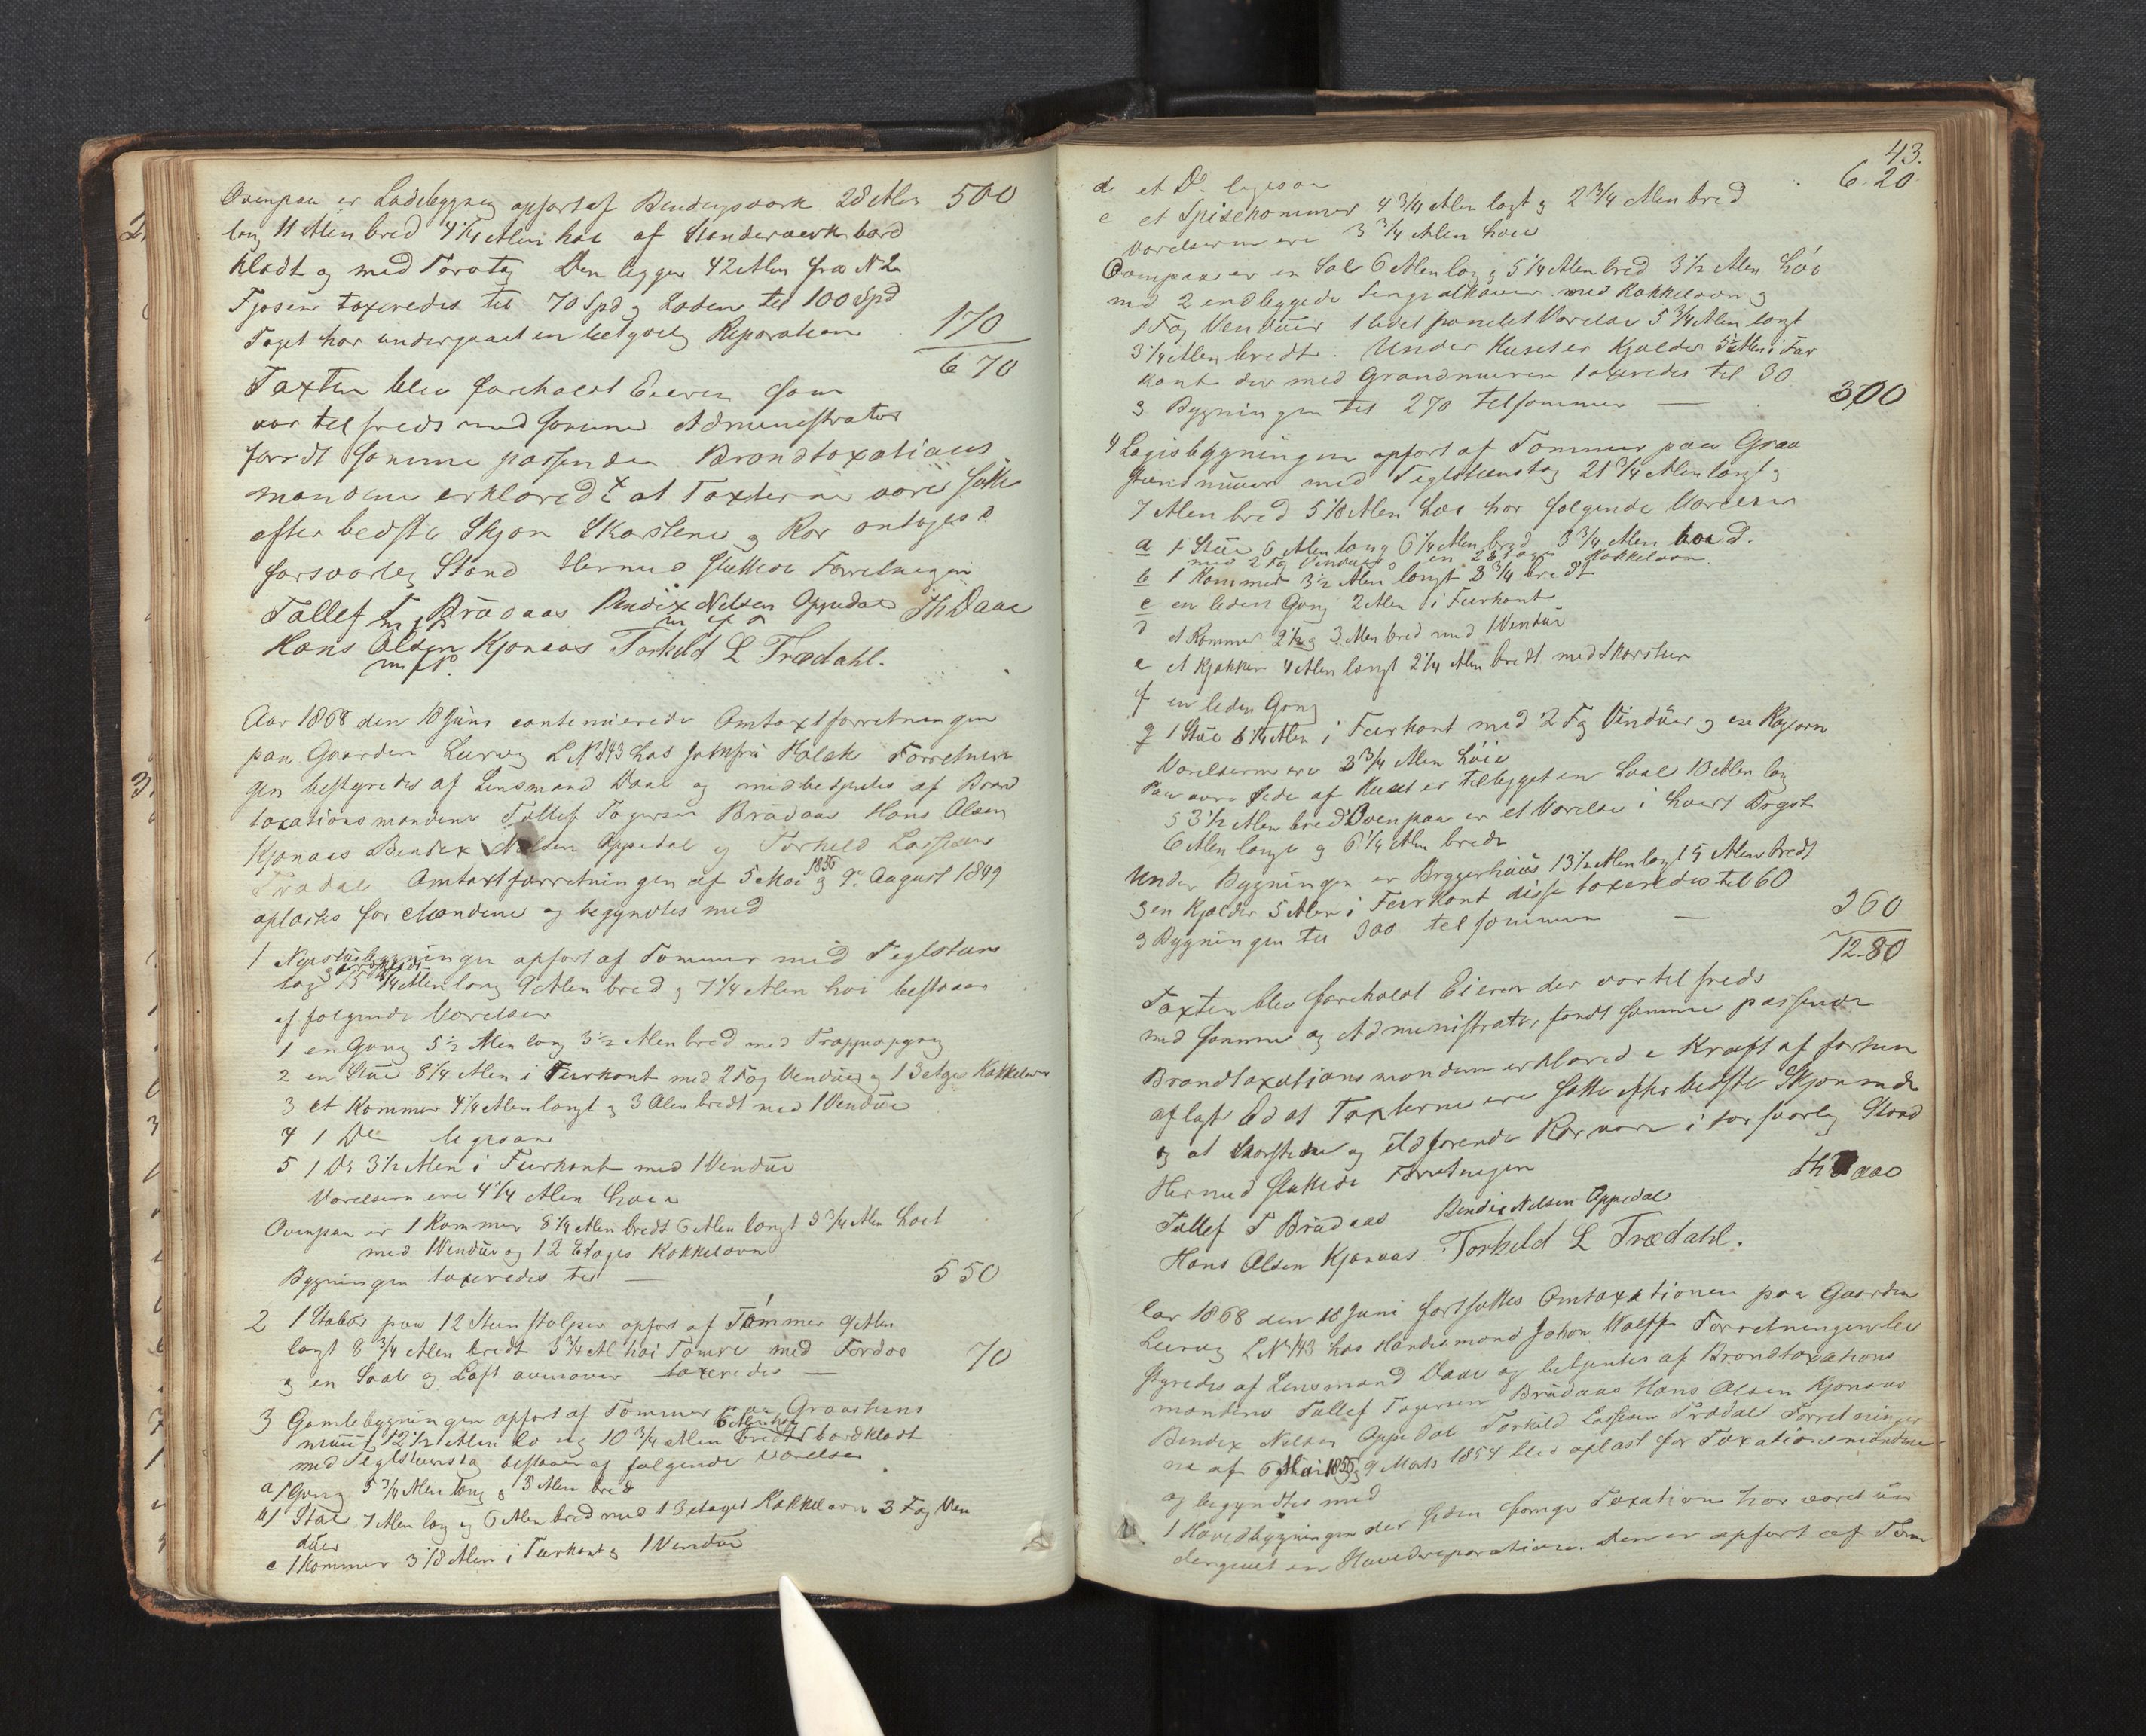 Ovenpaa er Ladebygning opført af Bindingsværk 28 Alen 500
lang 11 Alen bred 4 1/4 Alen høi af Standerværk bord
klædt og med Torvtag Den ligger 42 Alen fra N 2
Fjøsen taxeredes til 70 Spd og Laden til 100 Spd 170
Taget har undergaaet en betydelig Reparation
670
Taxten blev foreholdt Eieren som
var tilfreds med samme Administrator
fandt samme passende Brandtaxations
mændene erklærede at Taxterne vare satte
efter bedste Skjøn Skorstene og Rør antoges i
forsvarlig Stand Hermed sluttede Forretningen
Tallef T Braadaas Bendix Nelsen Oppedal Th Daae
m f P m f P
Hans Olsen Kjønaas Torkild L Trædahl.
m f P.
Aar 1868 den 18 Juni continuerede Omtaxtforretningen
paa Gaarden Lervig L N 143 hos Jomfru Hølck Forretnin
gen bestyredes af Lensmand Daae og medbetjentes af Brand
taxationsmændene Tallef Tøgersen Braadaas Hans Olsen
Kjønaas Bendix Nelsen Oppedal og Torkild Lassesen
Trædal Omtaxtforretningen af 5 Mai 1836 og 9 August 1849
oplæstes for Mændene og begyndtes med
1 Nyestuebygningen opført af Tømmer med Teglsteens
tag 15 1/4 Alen lang 9 Alen bred og 7 1/4 Alen høi bestaar
af følgende Værelser
1 en Gang 5 1/2 Alen lang 3 1/2 Alen bred med Trappeopgang
2 en Stue 8 1/4 Alen i Fiirkant med 2 Fag Vinduer og 1 3 etages Kakkelovn
3 et Kammer 4 1/4 Alen langt og 3 Alen bredt med 1 Vindue
4 1 Do ligesaa
5 1 Do 3 1/2 Alen i Fiirkant med 1 Vindue
Værelserne ere 4 1/4 Alen høie
Ovenpaa er 1 Kammer 8 1/4 Alen bredt 6 Alen langt 3 3/4 Alen høit
med 1 Vindue og 1 2 Etages Kakkelovn
Bygningen taxeredes til — 550
2 1 Stabur paa 12 Steen Stolper opført af Tømmer 9 Alen
langt 8 3/4 Alen bredt 5 3/4 Al høi Tømre med Fordør
og en Sval og Loft ovenover taxeredes — 70
3 Gamlebygningen opført af Tømmer paa Graasteens
muur 12 1/2 Alen la ng 10 3/4 Alen bred bordklædt
med Teglsteenstag bestaar af følgende Værelser
a 1 Gang 5 3/4 Alen lang og 3 Alen bred
b 1 Stue 7 Alen lang og 6 Alen bred med 1 3 etages Kakkelovn 3 Fag Vin
duer
c 1 Kammer 3 1/8 Alen i Fiirkant og 1 Vindue
43.
d et Do ligesaa 6.20
e et Spisekammer 4 3/4 Alen langt og 2 3/4 Alen bred
Værelserne ere 3 3/4 Alen høie
Ovenpaa er en Sal 6 Alen lang og 5 1/4 Alen bred 3 1/2 Alen høi
med 2 indbyggede Sengealkover med Kakkelovn og
1 Fag Vinduer 1 lidet panelet Værelse 5 3/4 Alen langt
3 1/4 Alen bredt. Under Huset er Kjælder 5 1/2 Alen i Fiir
kant der med Grundmuren taxeredes til 30
og Bygningen til 270 tilsammen — 300
4 Logisbygningen opført af Tømmer paa Graa
steensmuur med Teglsteenstag 21 3/4 Alen langt og
7 Alen bred 5 1/8 Alen høi har følgende Værelser
a 1 Stue 6 Alen lang 6 1/4 Alen bred 3 3/4 Alen høi
med 2 Fag Vinduer og en 2 Etages Kakkelovn
b 1 Kammer 3 1/2 Alen langt 3 3/4 bredt
c en liden Gang 2 Alen i Fiirkant
d et Kammer 2 1/2 og 3 Alen bred med 1 Vindue
e et Kjøkken 4 Alen langt 2 1/4 Alen bredt med Skorsten
f en liden Gang
g 1 Stue 6 1/4 Alen i Fiirkant med 2 Fag Vinduer og en Kogeovn
Værelserne ere 3 3/4 Alen høie
Paa øvre Side af Huset er tilbygget en Sval 10 Alen lang
og 3 1/2 Alen bred Ovenpaa er et Værelse i hvert Bryst
6 Alen lange og 6 1/4 Alen brede
Under Bygningen er Bryggerhuus 13 1/2 Alen langt 5 Alen bredt
og en Kjælder 5 Alen i Fiirkant disse taxeredes til 60
og Bygningen til 300 tilsammen — 360
1280
Taxten blev foreholdt Eieren der var tilfreds
med samme og Administrator fandt samme passende
Brandtaxationsmændene erklærede i Kraft af forhen
aflagt Ed at Taxterne ere satte efter bedste Skjønnende
og at Skorstene og ildførende Rør vare i forsvarlig Stand
Hermed sluttede Forretningen Th Daae
Tallef T Braadaas Bendix Nelsen Oppedal
Hans Olsen Kjønaas Torkild L Trædahl.
Aar 1868 den 18 Juni fortsattes Omtaxationen paa Gaarden
Lervig L N 143 hos Handelsmand Johan Wolff Forretningen be
styredes af Lensmand Daae og betjentes af Brandtaxations
mændene Tallef Tøgersen Braadaas Hans Olsen Kjønaas
Bendix Nelsen Oppedal Torkild Lassesen Trædal Forretninger
ne af 6 Mai 1836 og 9 Marts 1854 blev oplæst for Taxationsmændene
og begyndtes med
1 Hovedbygningen der siden forrige Taxation har været un
dergaaet en Hovedreparation. Den er opført af Tøm